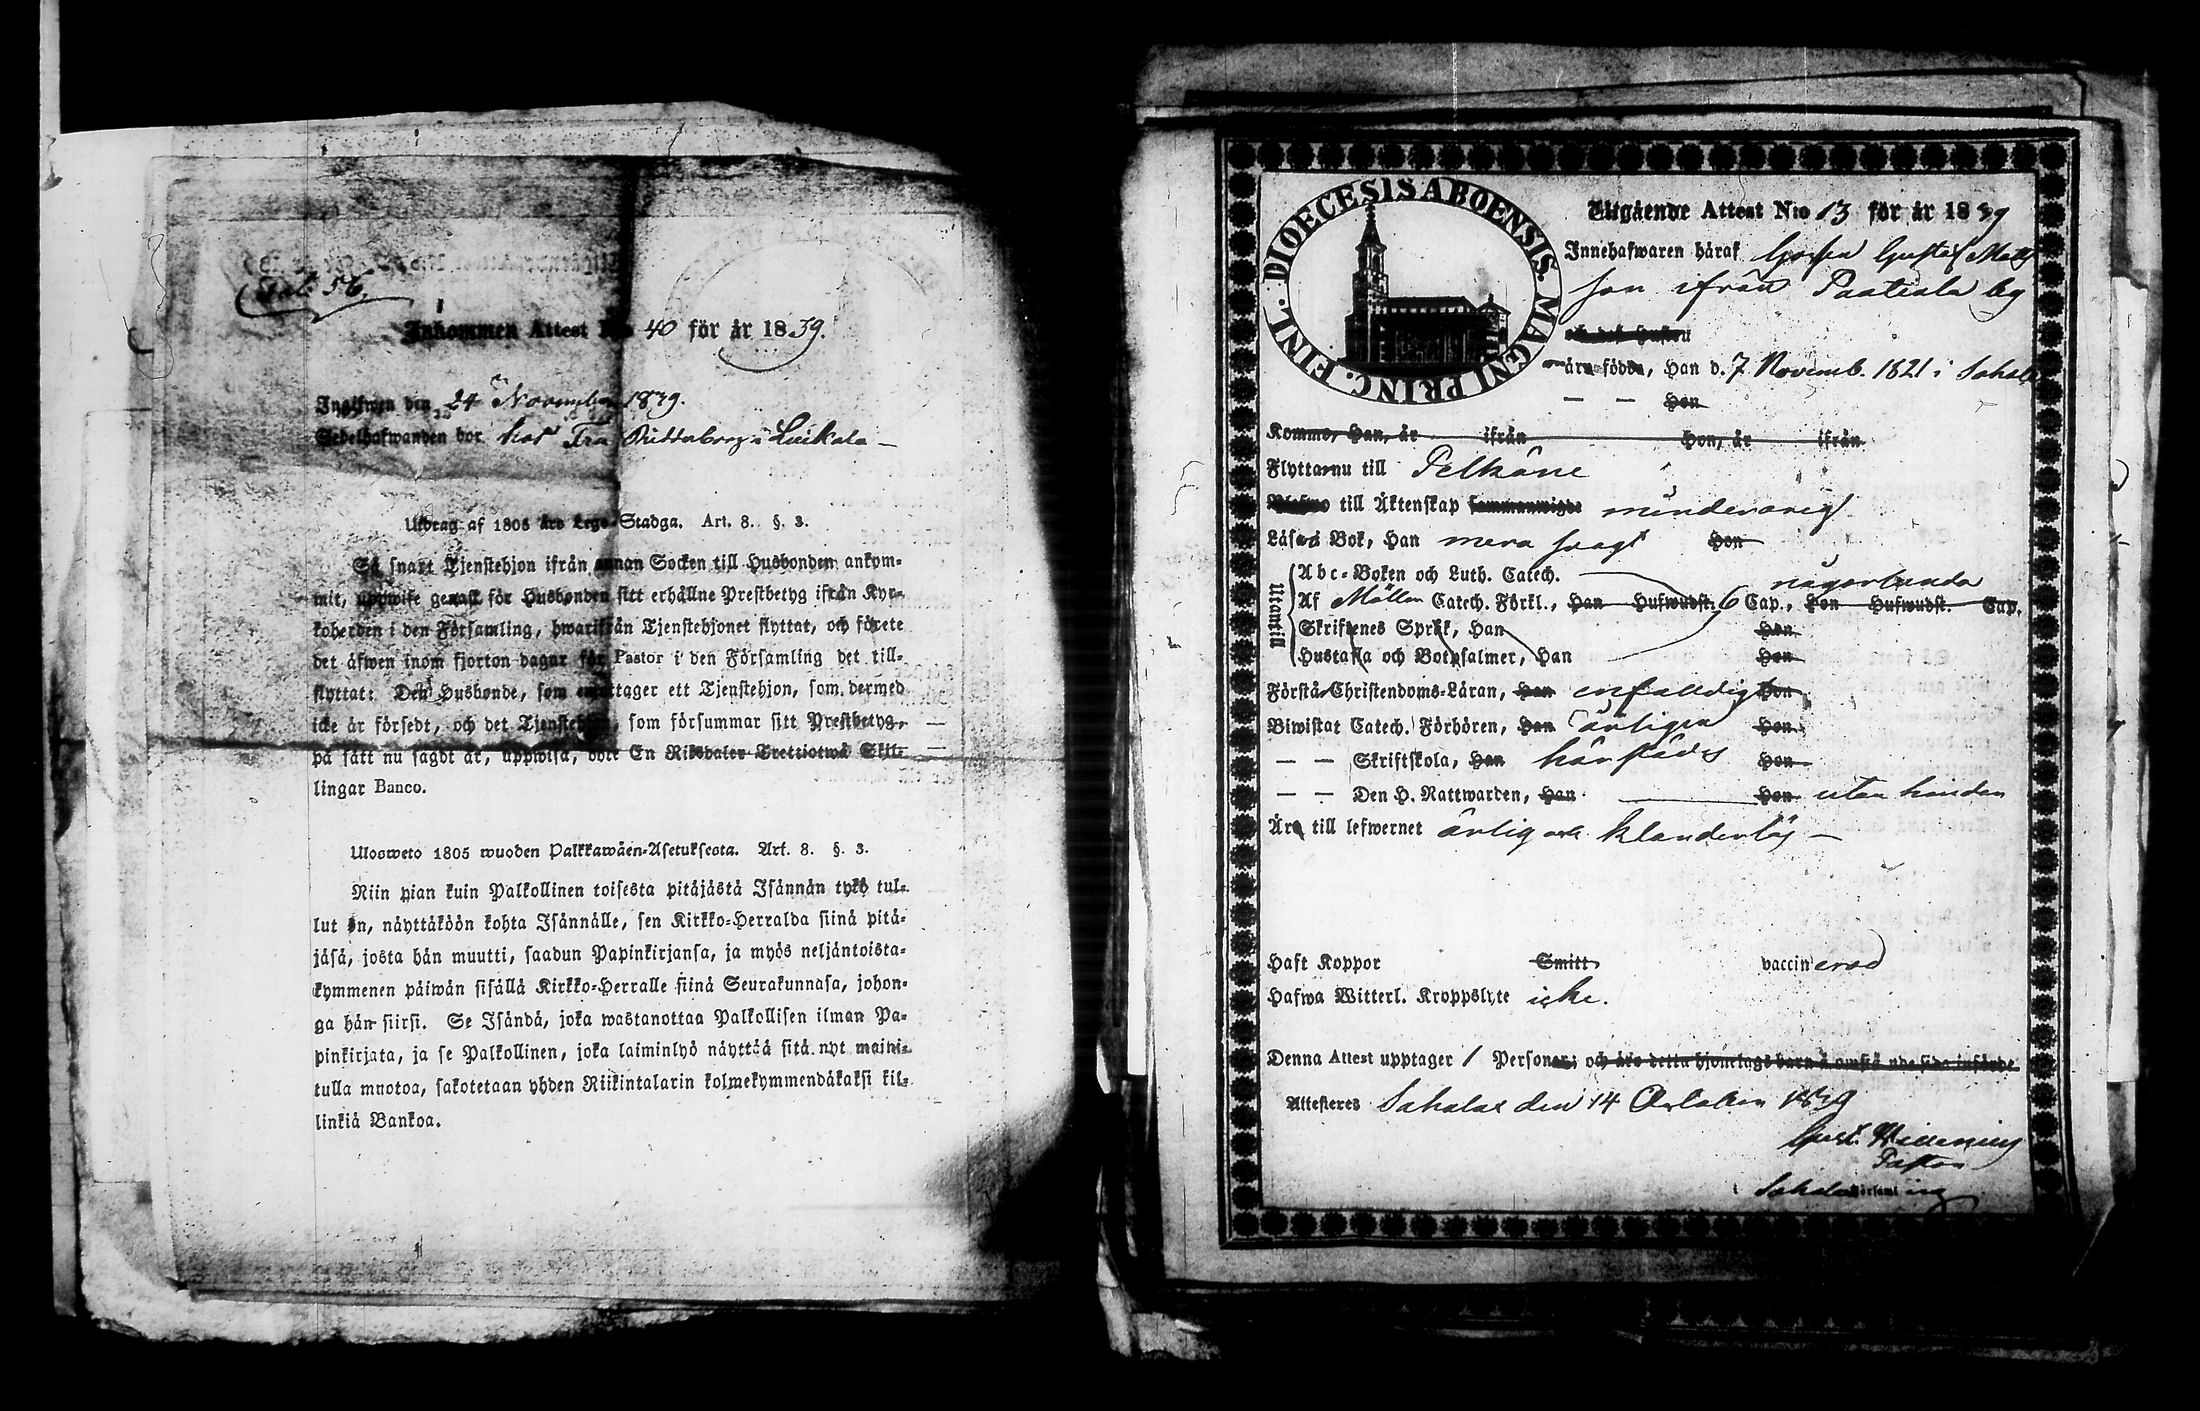 Fol: 56.
Inkommen Attest N:o 40 för år 1839.
Ingifwen den 24 November 1839.
Sedelhafwanden bor hos Fru Riddaborg i Luikala
Utdrag af 1805 års Lego-Stadga. Art. 8. §. 3.
Så snart Tjenstehjon ifrån annan Socken till Husbonden ankom-
mit, uppwise genast för Husbonden sitt erhållne Prestbetyg ifrån Kyr-
koherden i den Församling, hwarifrån Tjenstehjonet flyttat, och förete
det äfwen inom fjorton dagar för Pastor i den Församling det till-
flyttat: Den Husbonde, som emottager ett Tjenstehjon, som dermed
icke är försedt, och det Tjenstehjon, som försummar sitt Prestbetyg,
på sätt nu sagdt är, uppwisa, böte En Riksdaler Trettiotwå Skil-
lingar Banco.
Ulosweto 1805 wuoden Palkkawäen-Asetuksesta. Art. 8. §. 3.
Niin pian kuin Palkollinen toisesta pitäjästä Isännän tykö tul-
lut on, näyttäköön kohta Isännälle, sen Kirkko-Herralda siinä pitä-
jäsä, josta hän muutti, saadun Papinkirjansa, ja myös neljäntoista-
kymmenen päiwän sisällä Kirkko-Herralle siinä Seurakunnasa, johon-
ga hän siirsi. Se Isändä, joka wastanottaa Palkollisen ilman Pa-
pinkirjata, ja se Palkollinen, joka laiminlyö näyttää sitä nyt maini-
tulla muotoa, sakotetaan yhden Riikintalarin kolmekymmendäkaksi kil-
linkiä Bankoa.
DIOECESIS ABOENSIS MAGNI PRINC. FINL.
Utgående Attest N:o 13 för år 1839
Innehafwaren häraf Gossen Gustaf Matts
son ifrån Paatiala by
och des Hustru
äro födde, Han d. 7 Novemb. 1821 i Sahala
— — Hon
Kommo, Han, år ifrån Hon, år ifrån
Flytta nu till Pelkäne
till Äktenskap minderårig
Läsa i Bok, Han mera svagt Hon
Utantill
Abc-Boken och Luth. Catech. någorlunda
Af Möllers Catech. Förkl., Han Hufwudst. 6 Cap., Hon Hufwudst. Cap.
Skriftenes Språk, Han Hon
Hustafla och Botpsalmer, Han Hon
Förstå Christendoms-Läran, Han enfalldigt Hon
Biwistat Catech. Förhören, Han årligen Hon
— — Skriftskola, Han härstädes Hon
— — Den H. Nattwarden, Han Hon utan hinder
Äro till lefwernet ärlig och klanderlös —
Haft Koppor Smitt vaccinerad
Hafwa Witterl. Kroppslyte icke.
Denna Attest upptager 1 Personer; och äro detta hjonelags barn å omstående sida införde
Attesteres Sahalax den 14 October 1839
Pastor
Sahalax Församling